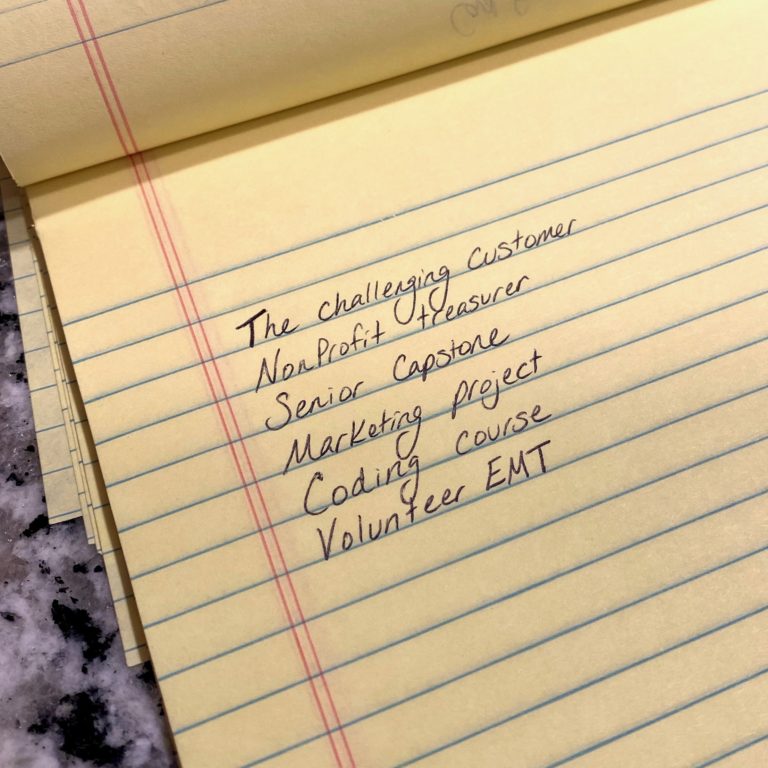 The challenging customer
NonProfit treasurer
Senior Capstone
Marketing project
Coding course
Volunteer EMT